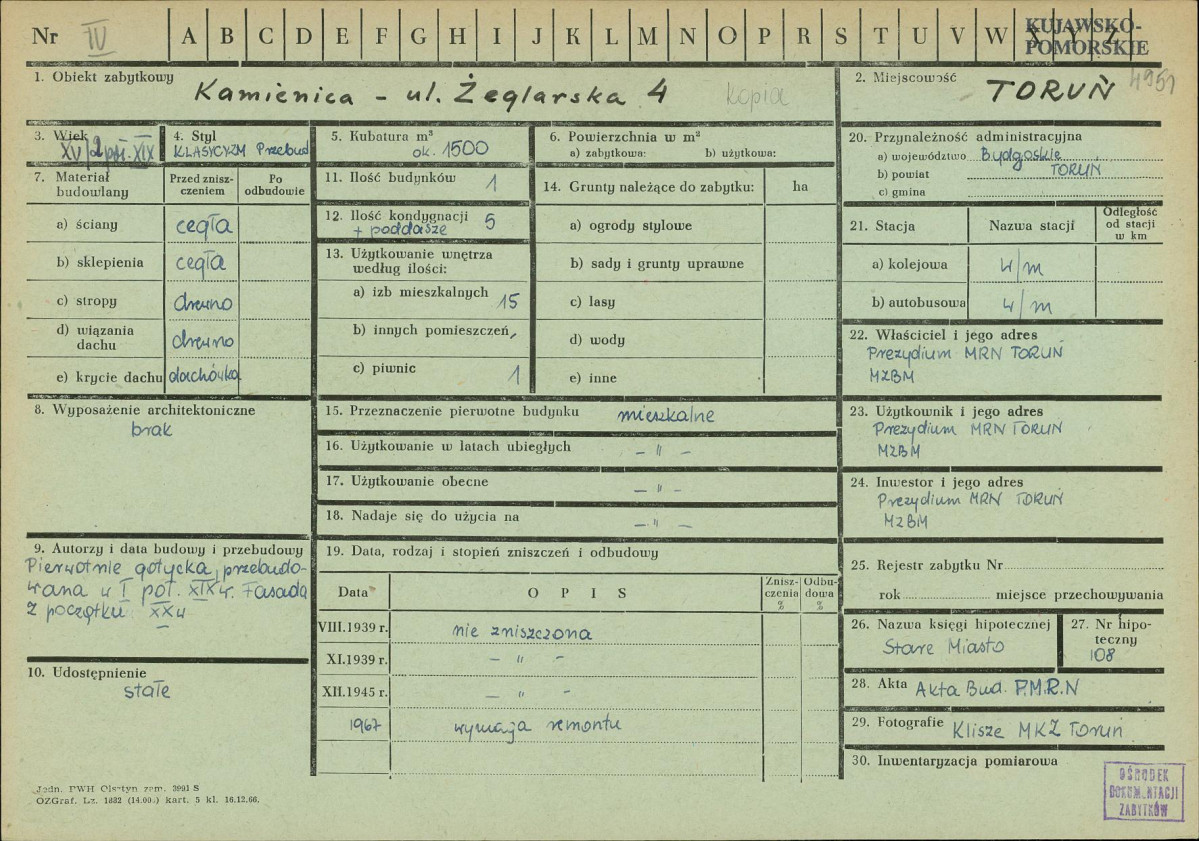 Nr IV A B C D E F G H I J K L M N O P R S T U V W X Y Z
KUJAWSKO-
POMORSKIE
1. Obiekt zabytkowy
Kamienica - ul. Żeglarska 4 kopia
2. Miejscowość
TORUŃ 4951
3. Wiek
XV/2 poł. XIX
4. Styl
KLASYCYZM Przebud
5. Kubatura m³
ok. 1500
6. Powierzchnia w m²
a) zabytkowa: b) użytkowa:
7. Materiał
budowlany
Przed znisz-
czeniem
Po
odbudowie
a) ściany cegła
b) sklepienia cegła
c) stropy drewno
d) wiązania
dachu drewno
e) krycie dachu dachówka
11. Ilość budynków 1
12. Ilość kondygnacji 5
+ poddasze
13. Użytkowanie wnętrza
według ilości:
a) izb mieszkalnych
15
b) innych pomieszczeń,
c) piwnic 1
14. Grunty należące do zabytku: ha
a) ogrody stylowe
b) sady i grunty uprawne
c) lasy
d) wody
e) inne
20. Przynależność administracyjna
a) województwo Bydgoskie
b) powiat TORUŃ
c) gmina
21. Stacja Nazwa stacji
Odległość
od stacji
w km
a) kolejowa w/m
b) autobusowa w/m
22. Właściciel i jego adres
Prezydium MRN TORUŃ
MZBM
23. Użytkownik i jego adres
Prezydium MRN TORUŃ
MZBM
24. Inwestor i jego adres
Prezydium MRN TORUŃ
MZBM
8. Wyposażenie architektoniczne
brak
15. Przeznaczenie pierwotne budynku mieszkalne
16. Użytkowanie w latach ubiegłych - " -
17. Użytkowanie obecne - " -
18. Nadaje się do użycia na - " -
9. Autorzy i data budowy i przebudowy
Pierwotnie gotycka, przebudo-
wana w I poł. XIX w. Fasada
z początku XX w
10. Udostępnienie
stałe
19. Data, rodzaj i stopień zniszczeń i odbudowy
Data O P I S
Znisz-
czenia
%
Odbu-
dowa
%
VIII.1939 r. nie zniszczona
XI.1939 r. - " -
XII.1945 r. - " -
1967 wymaga remontu
25. Rejestr zabytku Nr
rok miejsce przechowywania
26. Nazwa księgi hipotecznej
Stare Miasto
27. Nr hipo-
teczny
108
28. Akta Akta Bud. P.M.R.N
29. Fotografie Klisze MKZ Toruń
30. Inwentaryzacja pomiarowa
OŚRODEK
DOKUMENTACJI
ZABYTKÓW
Jedn. PWH Olsztyn zam. 3991 S
OZGraf. Lz. 1832 (14.00.) kart. 5 kl. 16.12.66.